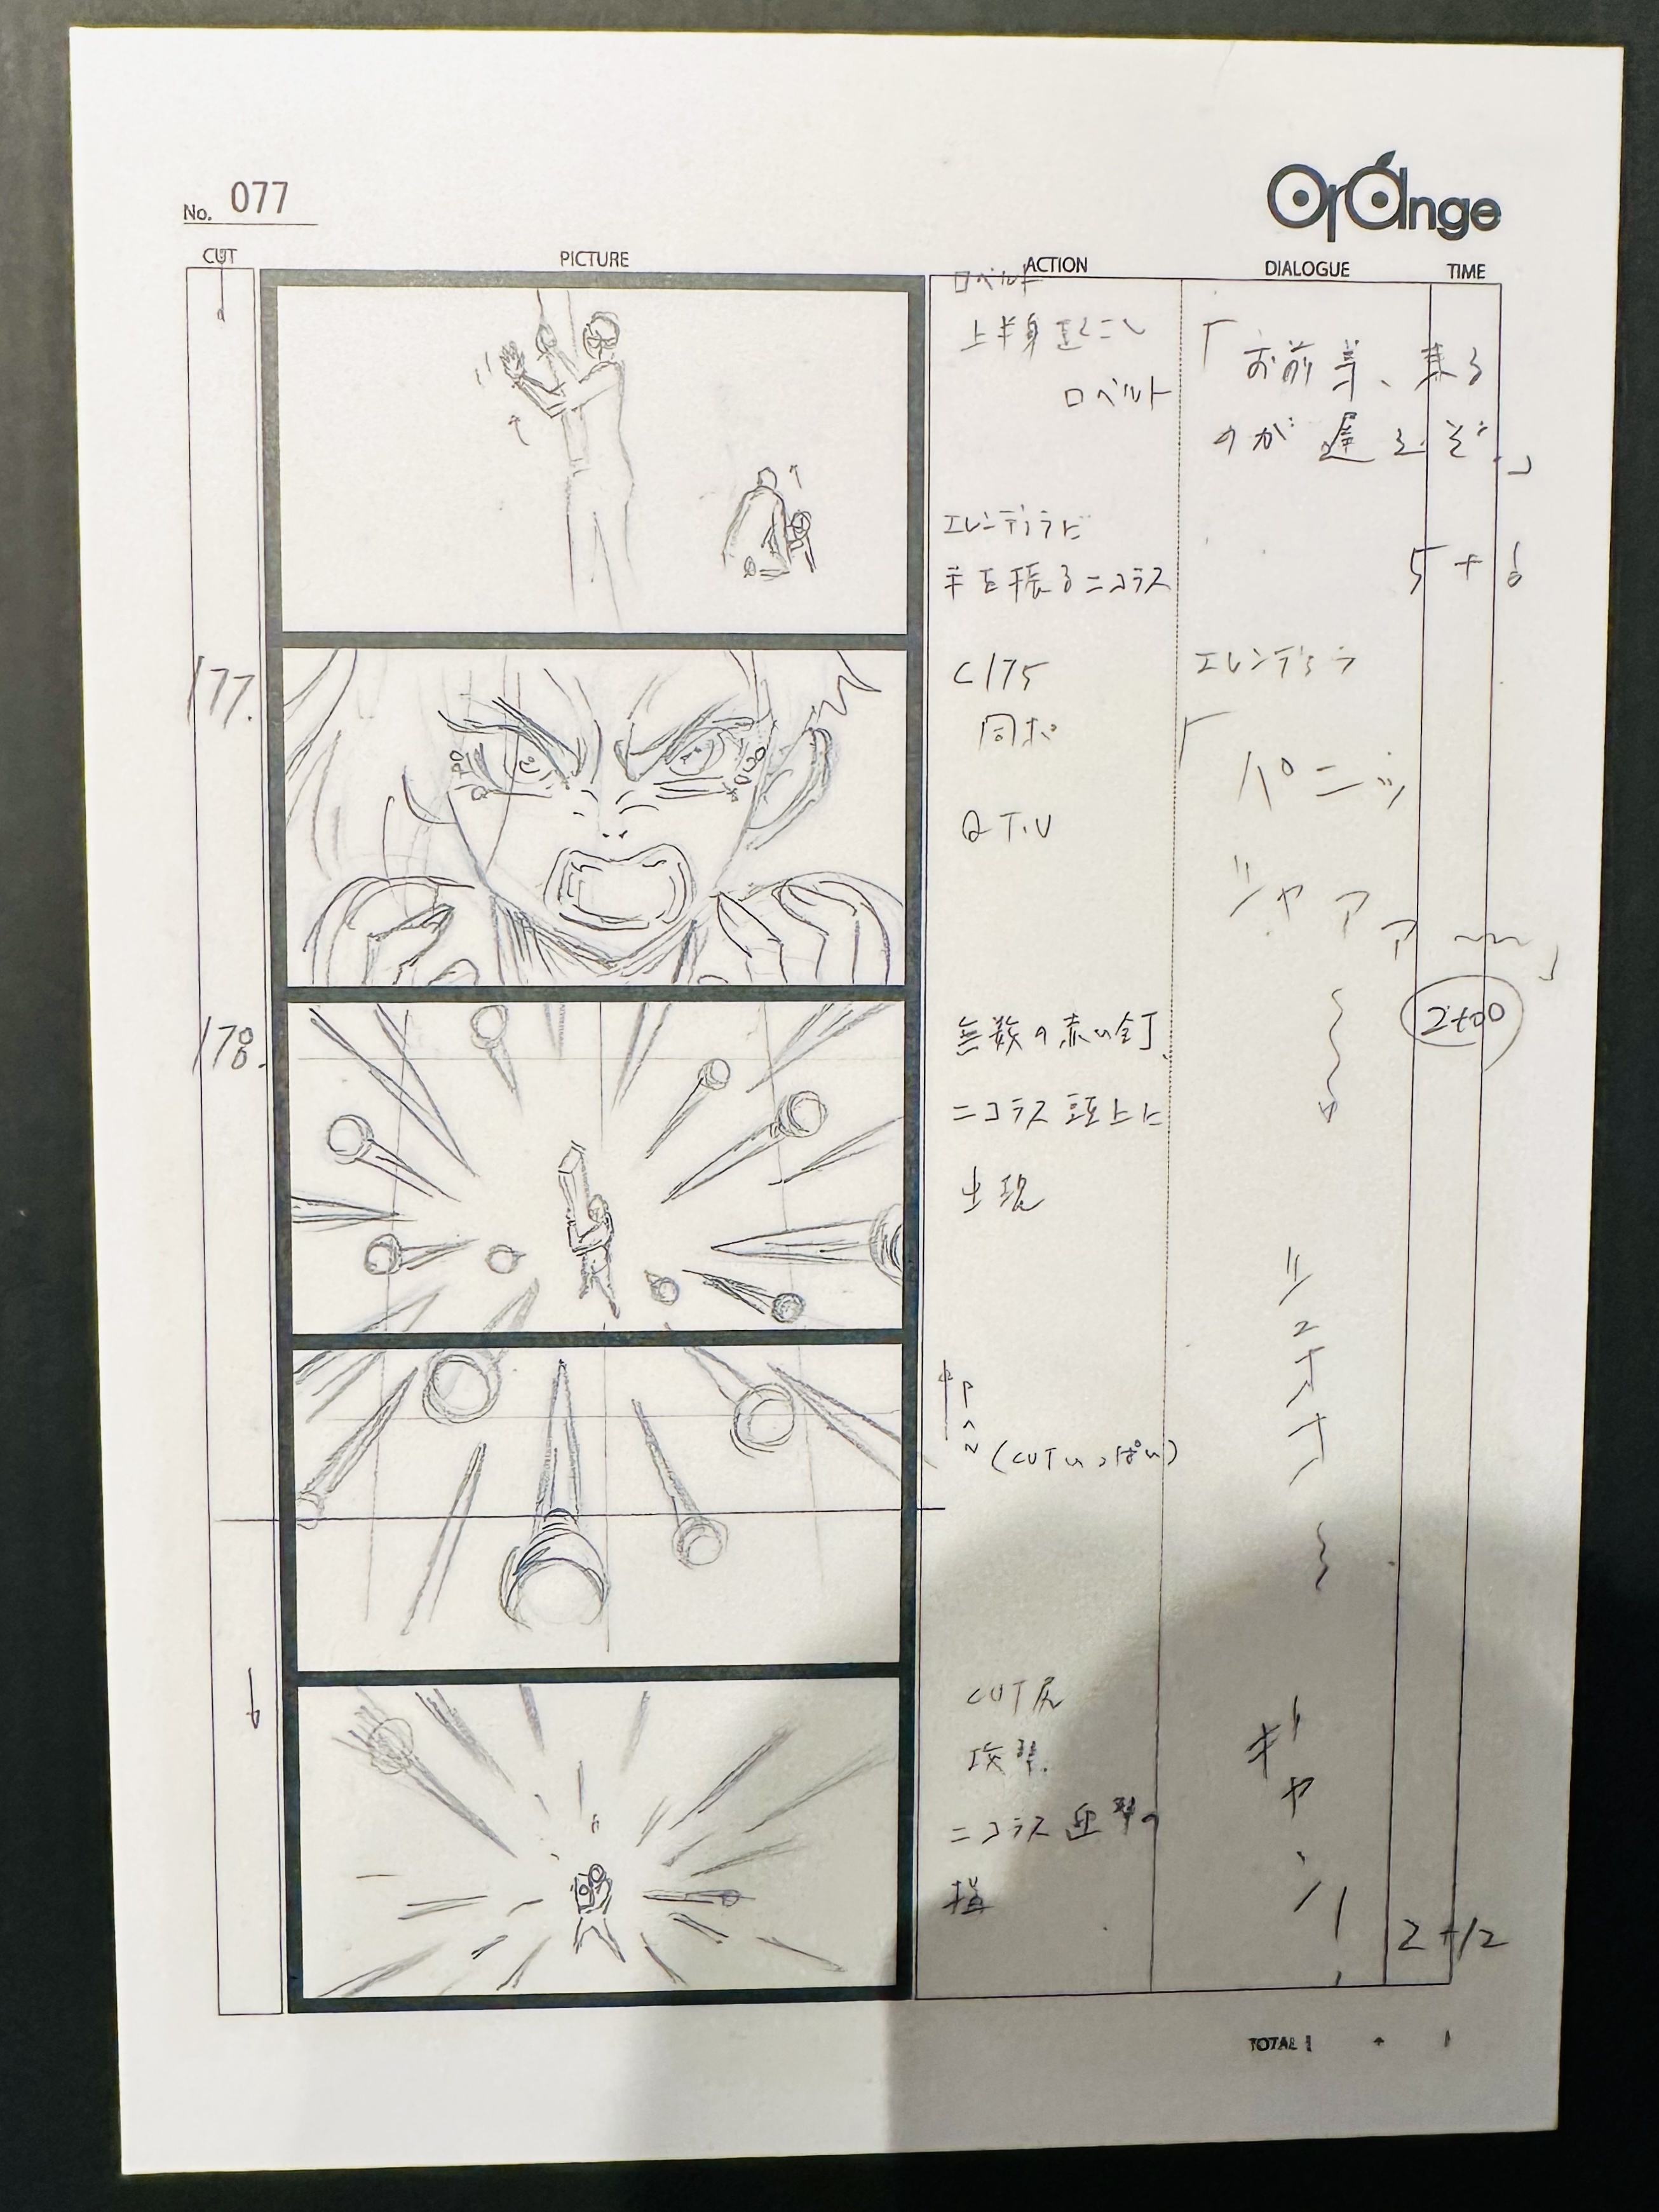 No. 077
Orange
CUT
PICTURE
ACTION
DIALOGUE
TIME
ロベルト
上半身起こし
ロベルト
「お前等、来る
のが遅えぞ。」
エレンディラに
手を振るニコラス
5+6
177.
C175
同ポ
Q T.U
エレンディラ
「パニッ
シャァァ〜〜」
2+00
178.
無数の赤い釘、
ニコラス頭上に
出現
PAN
(CUTいっぱい)
CUT尻
攻撃.
ニコラス迎撃の
ギャン!
2+12
TOTAL
+